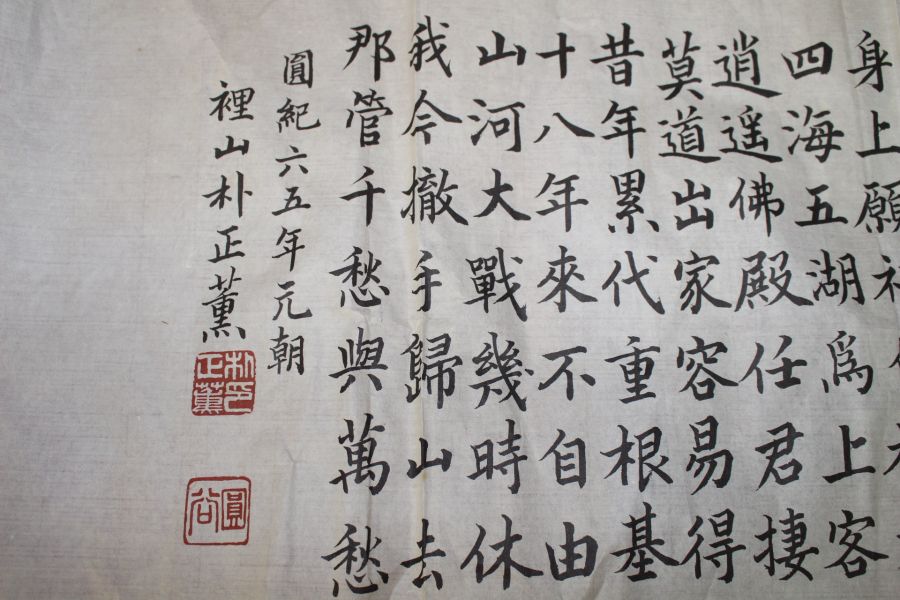 身上願
四海五湖爲上客
逍遥佛殿任君捿
莫道出家容易得
昔年累代重根基
十八年來不自由
山河大戰幾時休
我今撤手歸山去
那管千愁與萬愁
圓紀六五年元朝
裡山朴正薰
朴印
正薰
圓谷